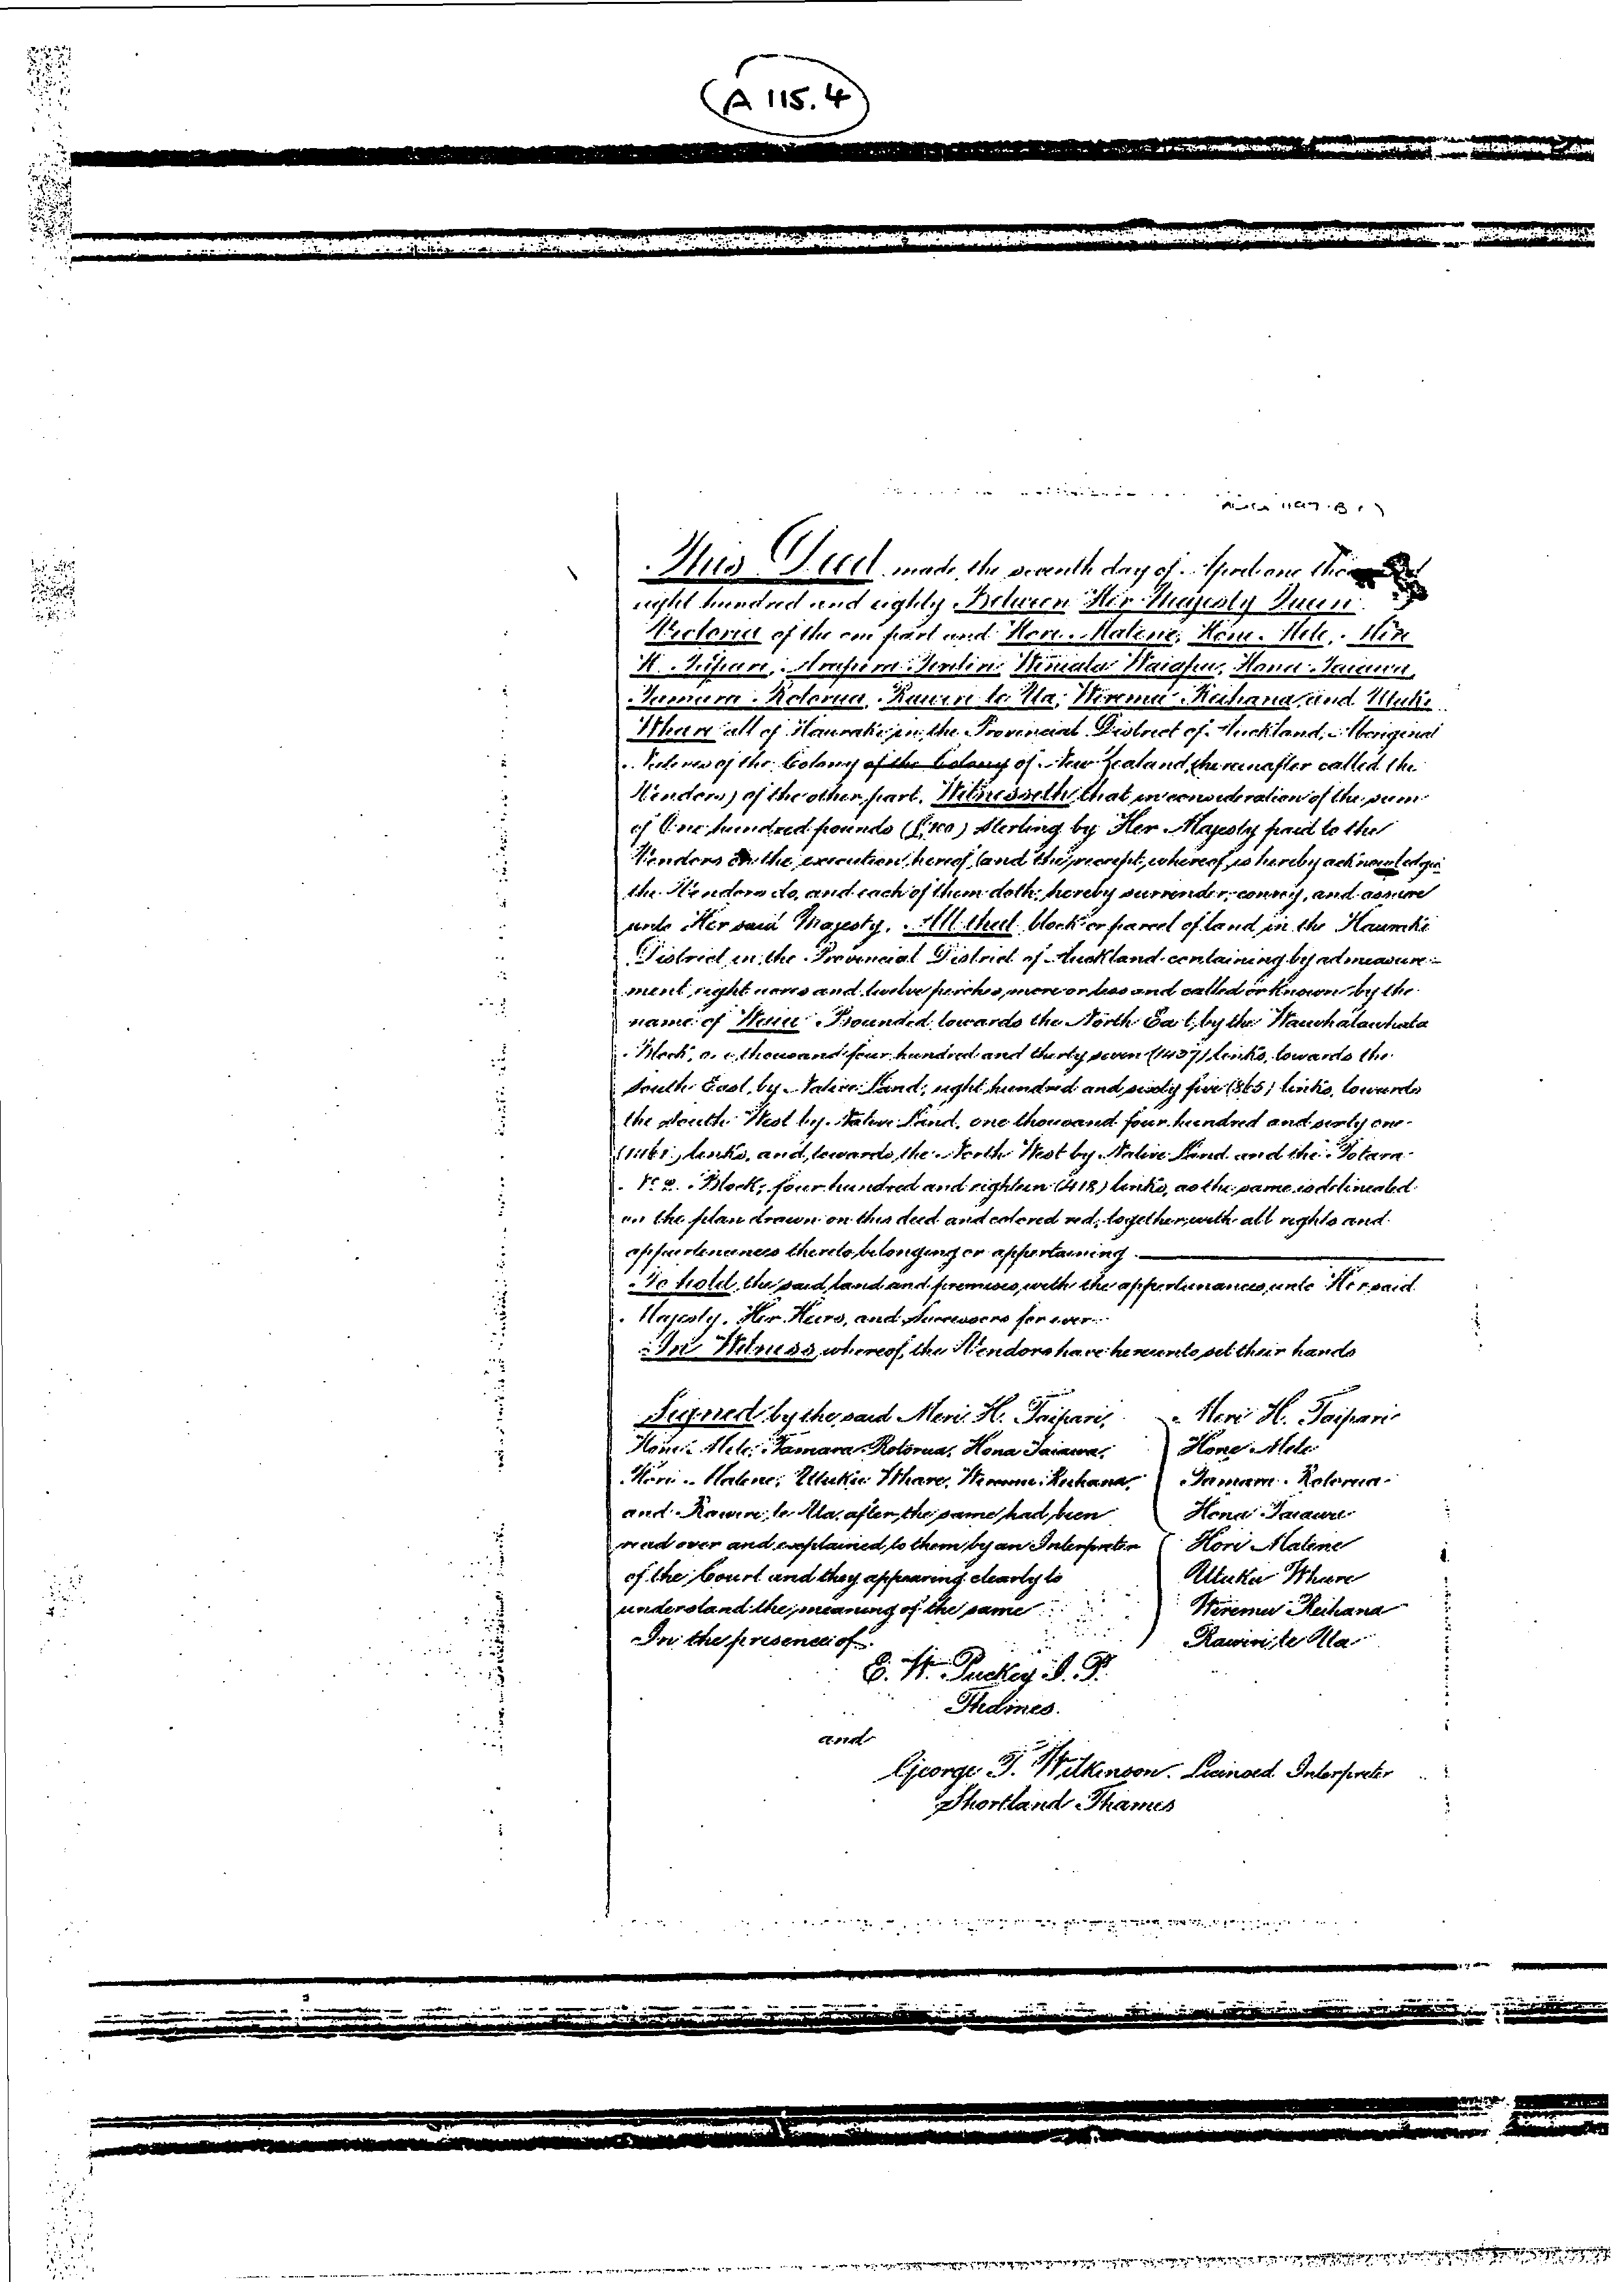 A 115.4
This Deed made the seventh day of April one
eight hundred and eighty Between Her Majesty Queen
Victoria of the one part and Hori Matene, Hone Mete,
H. Taipari, Winiata Waiapu, Hona Taiawa,
Tamara Rotorua, Rawiri te Ua, Wiremu Reihana and Utuku
Whare all of Hauraki in the Provincial District of Auckland, Aboriginal
Natives of the Colony of the Colony of New Zealand, (hereinafter called the
Vendors) of the other part. Witnesseth that in consideration of the sum
of One hundred pounds (£100) Sterling by Her Majesty paid to the
Vendors on the execution hereof (and the receipt whereof is hereby acknowledged
the Vendors do, and each of them doth, hereby surrender, convey, and assure
unto Her said Majesty. All that block or parcel of land in the Hauraki
District in the Provincial District of Auckland containing by admeasure-
ment eight acres and twelve perches, more or less and called or known by the
name of Bounded towards the North East by the Wauwhatawhata
Block, one thousand four hundred and thirty seven (1437) links, towards the
South East, by Native Land, eight hundred and sixty five (865) links, towards
the South West by Native Land, one thousand four hundred and sixty one
(1461) links, and, towards, the North West by Native Land and the Totara
No 2. Block, four hundred and eighteen (418) links, as the same is delineated
on the plan drawn on this deed and colored red, together with all rights and
appurtenances thereto belonging or appertaining.
To hold the said land and premises, with the appurtenances, unto Her said
Majesty, Her Heirs, and Successors for ever.
In Witness whereof, the Vendors have hereunto set their hands
Signed by the said Meri H. Taipari, Meri H. Taipari
Hone Mete, Tamara Rotorua, Hona Taiawa, Hone Mete
Hori Matene, Utuku Whare, Wiremu Reihana, Tamara Rotorua
and Rawiri te Ua, after the same had been Hona Taiawa
read over and explained to them by an Interpreter Hori Matene
of the Court and they appearing clearly to Utuku Whare
understand the meaning of the same Wiremu Reihana
In the presence of Rawiri te Ua
E. W. Puckey J. P.
Thames.
and
George T. Wilkinson. Licensed Interpreter
Shortland Thames